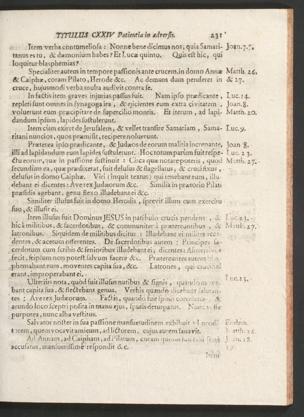 TITULUS CXXIV Patientia in adversis. 231
Item verba contumeliosa: Nonne bene dicimus nos, quia Samari- Joan. 7.
tanus es tu, & dæmonium habes? Et Lucæ quinto. Quis est hic, qui
loquitur blasphemias?
Specialiter autem in tempore passionis ante crucem, in domo Annæ Matth. 26.
& Caiphæ, coram Pilato, Herode &c. Ac demum dum penderet in & 27.
cruce, hujusmodi verba multa audivit contra se.
In factis item graves injurias passus fuit. Nam ipso prædicante, Luc. 4.
repleti sunt omnes in synagoga ira, & ejicientes eum extra civitatem, Joan. 8.
voluerunt eum præcipitare de supercilio montis. Et iterum, ad lapi- Marth. 20.
dandum ipsum, lapides sustulerunt.
Item cum exiret de Jerusalem, & vellet transire Samariam, Sama- Luc. 9.
ritani nuncios, quos præmisit, recipere noluerunt.
Præterea ipso prædicante, & Judæos de eorum malitia increpante, Joan 8.
illi ad lapidandum eum lapides sustulerunt. Hoc tamen parum fuit respe- Luc.
ctu eorum, quæ in passione sustinuit: Circa quæ notare poteris, quod Matth. 27.
secundum ea, quæ prædixerat, fuit delusus & flagellatus, & crucifixus,
delusus in domo Caiphæ. Viri (inquit textus) qui tenebant eum, illu-
debant ei dicentes: Ave rex Judæorum &c. Similia in prætorio Pilati
præsidis agebant, genu flexo illudebant ei &c.
Similiter illusus fuit in domo Herodis, sprevit illum cum exercitu
suo, & illusit ei.
Item illusus fuit Dominus JESUS in patibulo crucis pendens, &
hic à militibus, & sacerdotibus, & communiter à prætereuntibus, & Matth. 27.
latronibus. Siquidem de militibus dicitur: Illudebant ei milites
dentes, & acetum offerentes. De sacerdotibus autem: Principes sa-
cerdotum cum scribis & senioribus illudebant ei, dicentes: Alios salvos
fecit, seipsum non potest salvum facere &c. Prætereuntes autem bla-
phemabant eum, moventes capita sua, &c. Latrones, qui
erant, improperabant ei.
Ulterius nota, quod fuit illusus nutibus & signis,
bant capita sua, & flectebant genua. Verbis quando dicebant
tes: Ave rex Judæorum. Factis, quando fuit spinis coronatus, &
arundo loco sceptri posita in manu ejus,
purpurea, nunc alba vestitus.
Salvator noster in sua passione mansuetudinem exhibuit:
item, quem vocavit amicum, ad lictorem, cujus aurem sanavit.
Ad Annam, ad Caipham, ad Pilatum, coram quibus
accusatus, mansuetissime respondit &c.